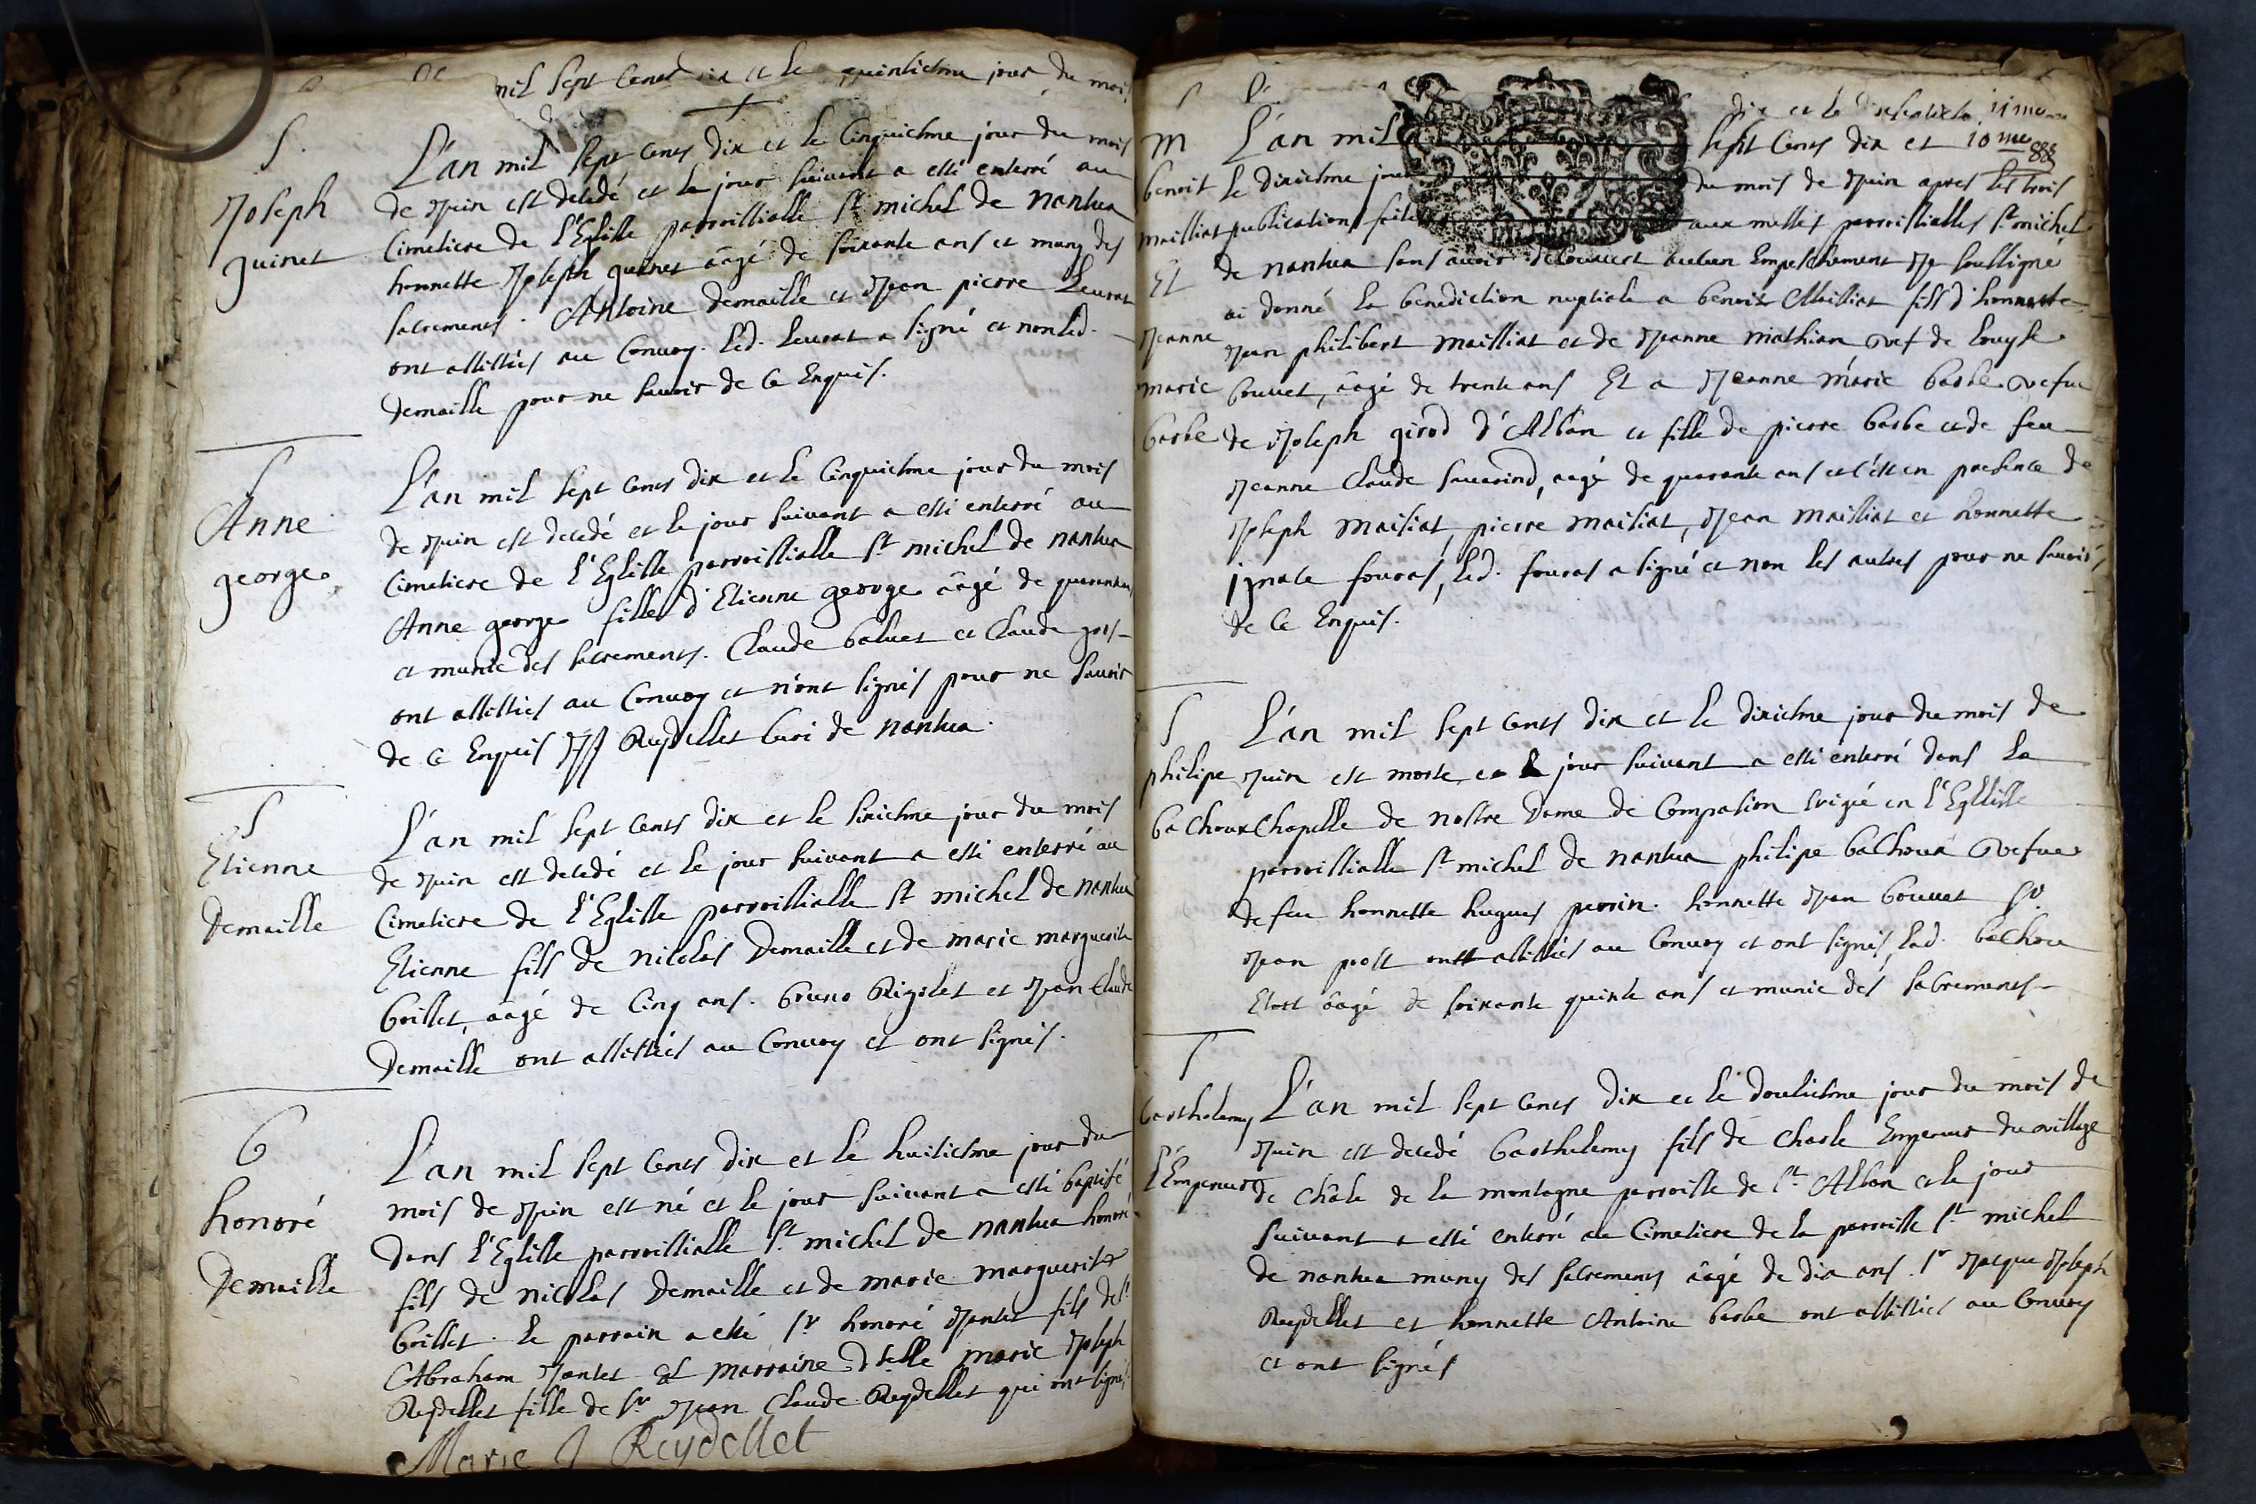 mil sept cents dix et le quinziesme jour du mois
S.
Joseph
guinet
L'an mil sept cents dix et le Cinquiesme jour du mois
de Juin est decedé et le jour suivant a esté enterré au
Cimetiere de l'Eglise parroissialle St michel de nantua
honnette Joseph guinet aâgé de soixante ans et muny des
sacrements. Antoine Demaille et Jean pierre Leurat
ont assistés au Convoy. Led. Leurat a signé et non led.
Demaille pour ne savoir de ce Enquis.
S
Anne
george
L'an mil sept cents dix et le Cinquiesme jour du mois
de Juin est decedé et le jour suivant a esté enterré au
Cimetiere de l'Eglise parroissialle St michel de nantua
Anne george fille d'Etienne george aâgé de quarante
et munie des sacrements. Claude baluet et Claude
ont assistés au Convoy et n'ont signés pour ne savoir
de ce Enquis Reydellet Curé de nantua.
S
Etienne
Demaille
L'an mil sept cents dix et le sixiesme jour du mois
de Juin est decedé et le jour suivant a esté enterré au
Cimetiere de l'Eglise parroissialle St michel de nantua
Etienne fils de nicolas Demaille et de marie marguerite
boillet, aâgé de Cinq ans. bruno Rigolet et Jean Claude
Demaille ont assistés au Convoy et ont signés.
b
honoré
Demaille
L'an mil sept cents dix et le huitiesme jour du
mois de Juin est né et le jour suivant a esté baptisé
dans l'Eglise parroissialle St michel de nantua honoré
fils de nicolas Demaille et de marie marguerite
boillet. Le parrain a esté Sr honoré Jantet fils de Sr
Abraham Jantet et marraine dselle marie Joseph
Reydellet fille de Sr Jean Claude Reydellet qui ont signés
Marie J Reydellet
dix et le 11me
10me
88
m
benoit
mailliat
Et
Jeanne
marie
barbe
L'an mil sept Cents dix et
le dixiesme jour du mois de Juin apres les trois
publications faites aux messes parroissialles St michel
de nantua sans avoir découvert aucun Empeschement Je soussigné
ai donné la benediction nuptiale a benoit Mailliat fils d'honnette
Jean philibert mailliat et de Jeanne mathian vef de Louyse
bouvet, aâgé de trente ans Et a Jeanne marie barbe vefue
de Joseph girod d'Alban et fille de pierre barbe et de feu
Jeanne Claude sauarind, aâgé de quarante ans et c'est en presence de
Joseph maisiat, pierre maisiat, Jean maisliat et honnette
ignace fouras, led. fouras a signé et non les autres pour ne savoir
de ce Enquis.
S
philipe
bachoux
L'an mil sept cents dix et le dixiesme jour du mois de
Juin est morte et le jour suivant a esté enterré dans la
Chapelle de nostre Dame de Compasion Erigié en l'Eglise
parroissialle St michel de nantua philipe bachoux vefue
de feu honnette hugues perrin. honnette Jean bouvet Sr
Jean prost ont assistés au Convoy et ont signés, lad. bachou
Etoit aâgé de soixante quinze ans et munie des sacrements
S
bartholemy
l'Empereur
L'an mil sept cents dix et le douziesme jour du mois de
Juin est decedé barthelemy fils de Charle Empereur du village
de Châle de la montagne parroisse de St Alban et le jour
suivant a esté enterré au Cimetiere de la parroisse St michel
de nantua muny des sacrements aâgé de dix ans. Sr Jacque Joseph
Reydellet et honnette Antoine barbe ont assistés au Convoy
et ont signés